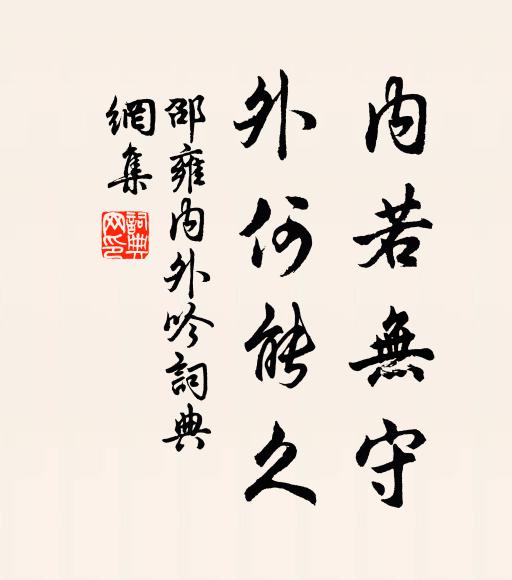 內若無守
外何能久
邵雍內外吟詞典
網集
詞典
网印